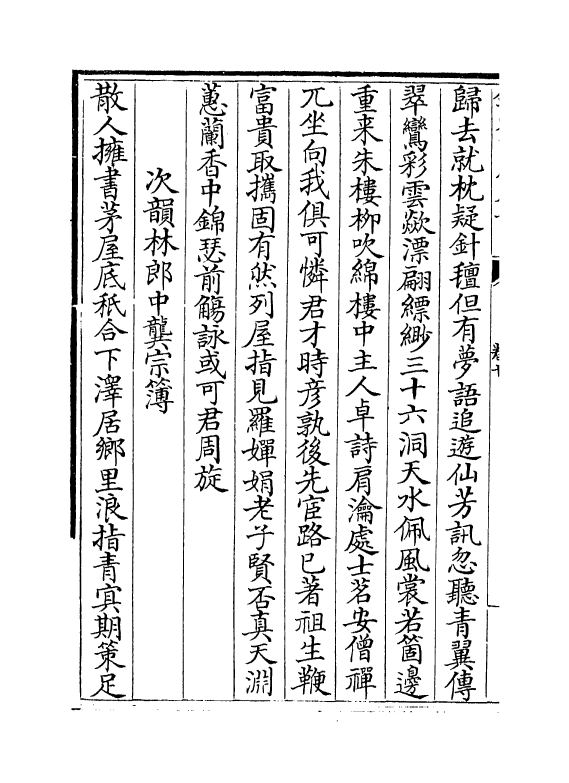 歸去就枕疑針氊但有夢語追遊仙芳訊忽聽青翼傳
翠鸞彩雲歘漂翩縹緲三十六洞天水佩風裳若箇邊
重来朱樓柳吹綿樓中主人卓詩肩瀹處士茗安僧禪
兀坐向我俱可憐君才時彦孰後先宦路已著祖生鞭
富貴取攜固有然列屋指見羅嬋娟老子賢否真天淵
蕙蘭香中錦瑟前觴詠或可君周旋
次韻林郎中龔宗簿
散人擁書茅屋底秖合下澤居鄉里浪指青寘期策足
卷十